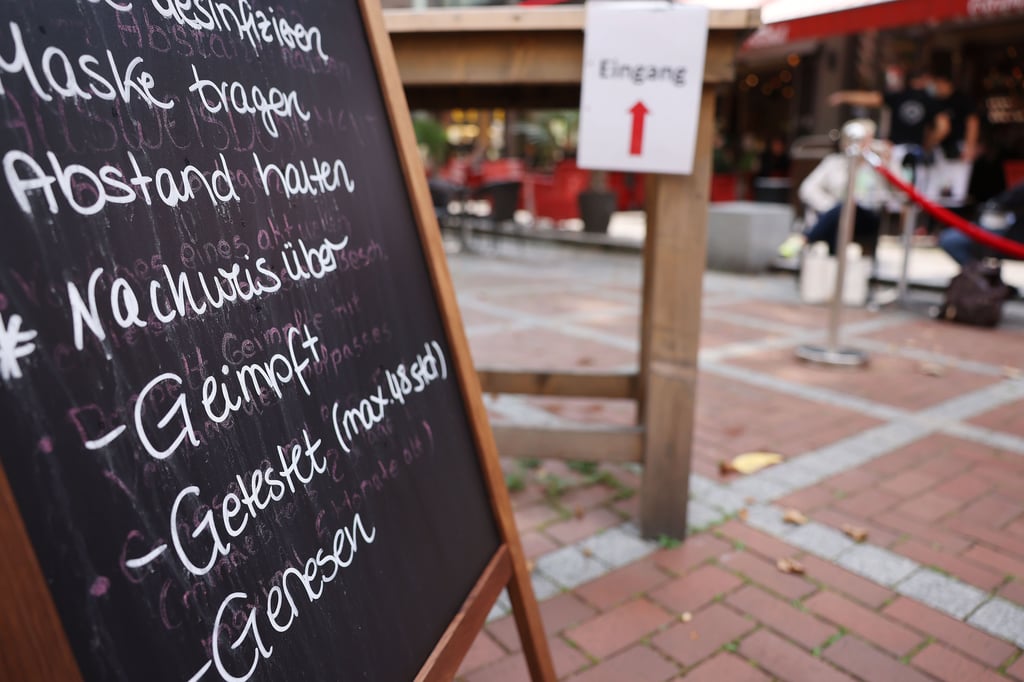 desinfizieren
Maske tragen
Abstand halten
* Nachweis über
- Geimpft
- Getestet (max. 48 std)
- Genesen
Eingang